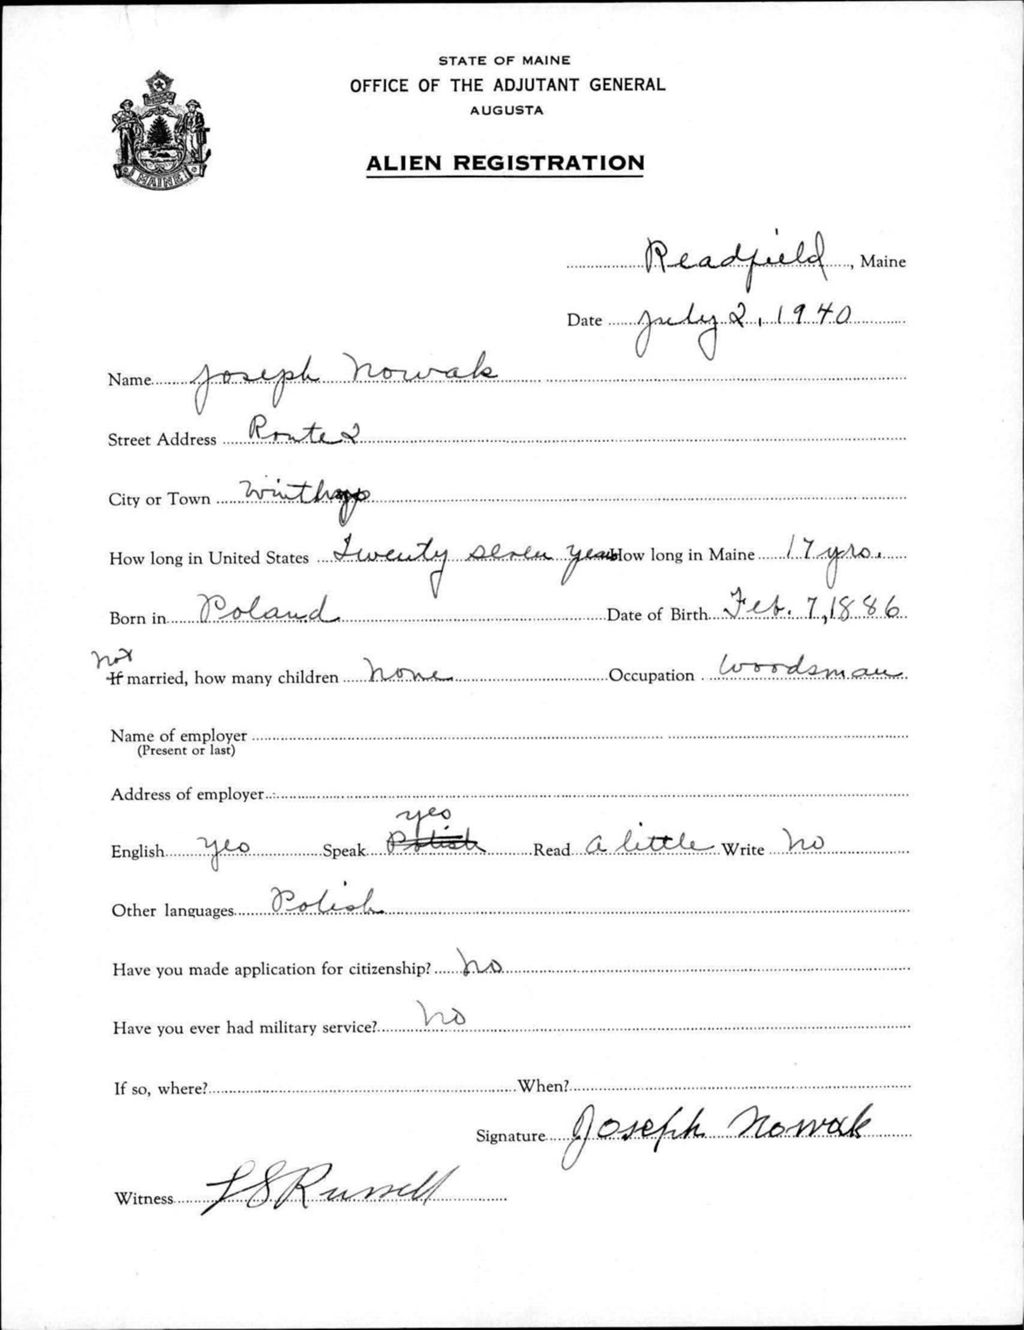 STATE OF MAINE
OFFICE OF THE ADJUTANT GENERAL
AUGUSTA
MAINE
ALIEN REGISTRATION
Readfield, Maine
Date July 2, 1940
Name Joseph Nowak
Street Address Route 2
City or Town Winthrop
How long in United States Twenty seven years How long in Maine 17 yrs.
Born in Poland Date of Birth Feb. 7, 1886
Not
If married, how many children None Occupation Woodsman
Name of employer
(Present or last)
Address of employer
yes
English yes Speak Polish Read a little Write No
Other languages Polish
Have you made application for citizenship? No
Have you ever had military service? No
If so, where? When?
Signature Joseph Nowak
Witness L S Russell